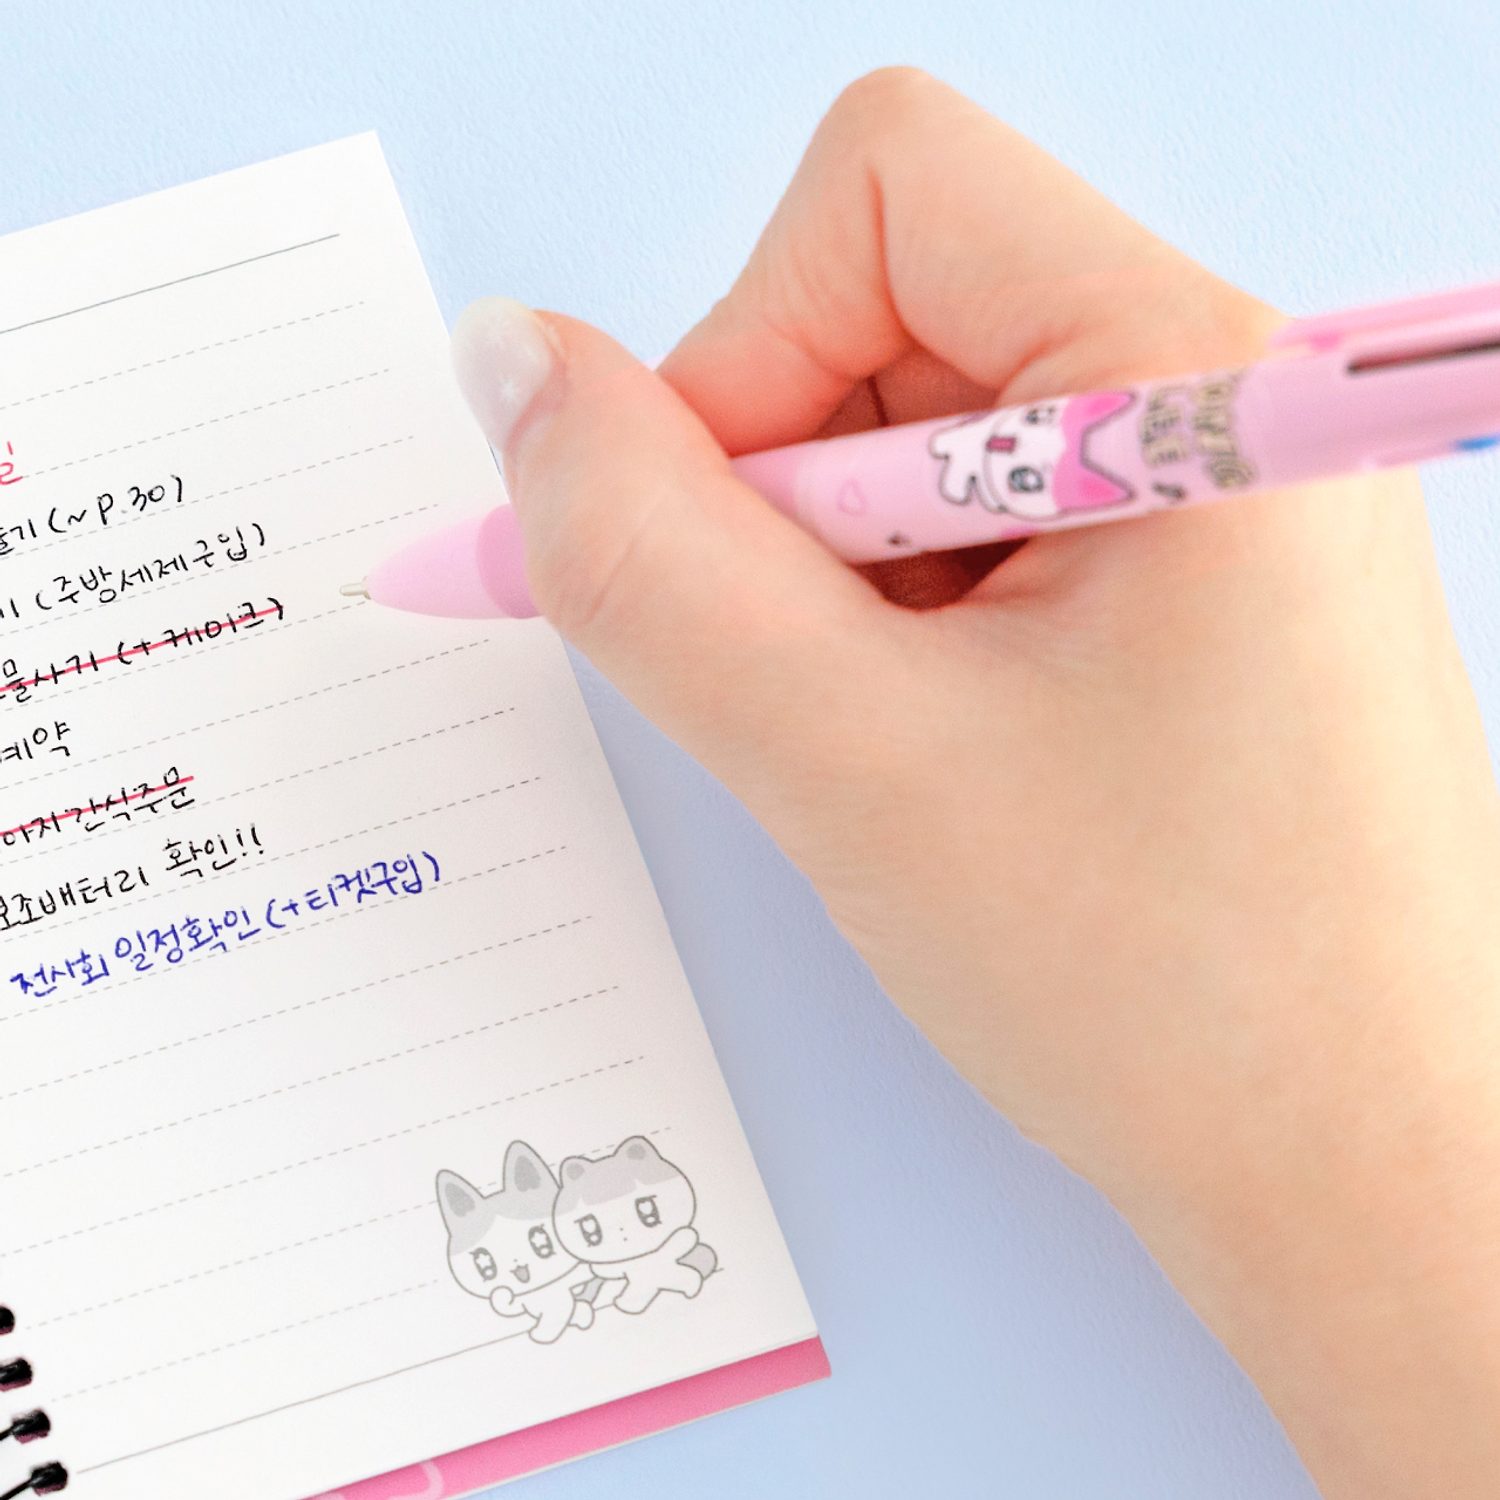 일
기 (~P.30)
기 (주방세제구입)
물사기 (+케이크)
예약
아지 간식주문
보조배터리 확인!!
전시회 일정확인 (+티켓구입)